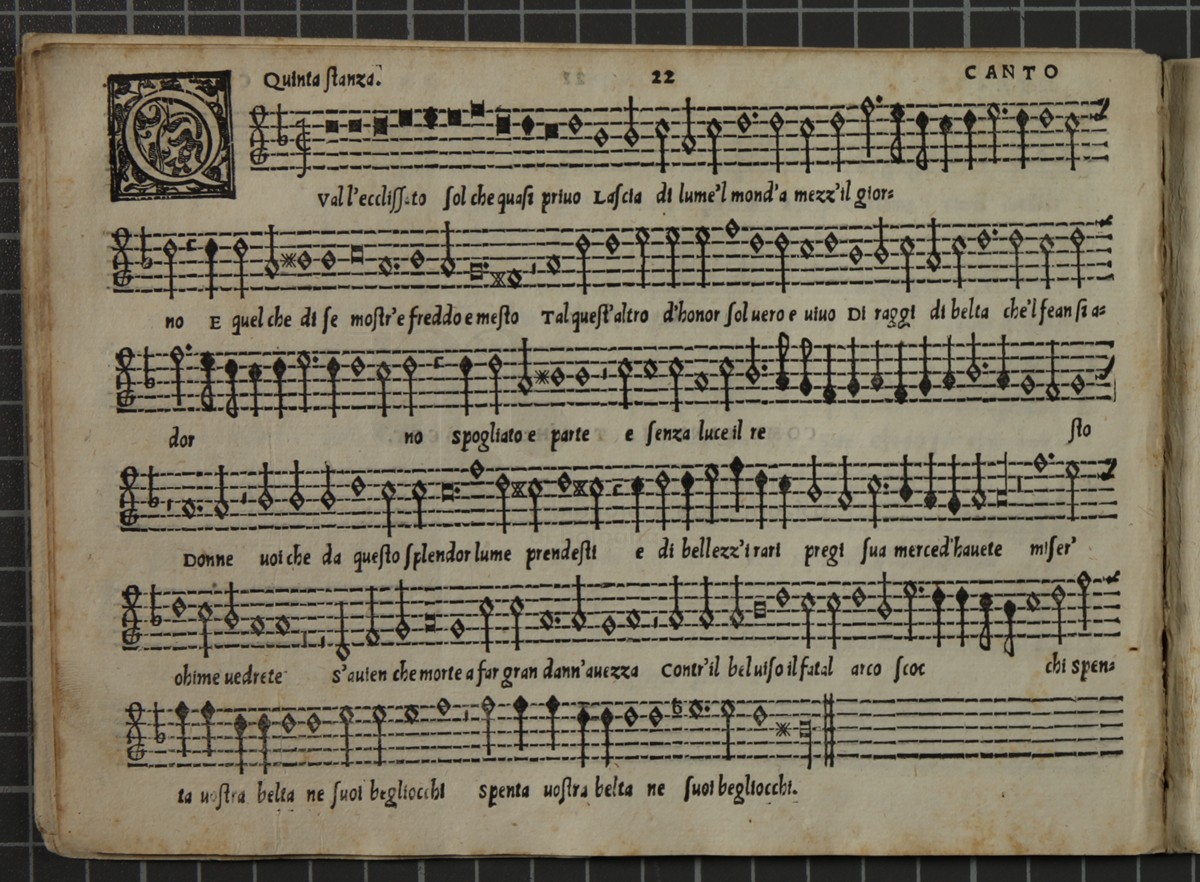 Quinta stanza. 22 CANTO
QVal l'ecclissato sol che quasi priuo Lascia di lume'l mond'a mezz'il gior=
no E quel che di se mostr'e freddo e mesto Tal quest'altro d'honor sol uero e uiuo Di raggi di belta che'l fean si a=
dor no spogliato e parte e senza luce il re sto
Donne uoi che da questo splendor lume prendesti e di bellezz'i rari pregi sua merced'hauete miser'
ohime uedrete S'auien che morte a far gran dann'auezza Contr'il bel uiso il fatal arco scoc chi spen=
ta uostra belta ne suoi begliocchi spenta uostra belta ne suoi begliocchi.